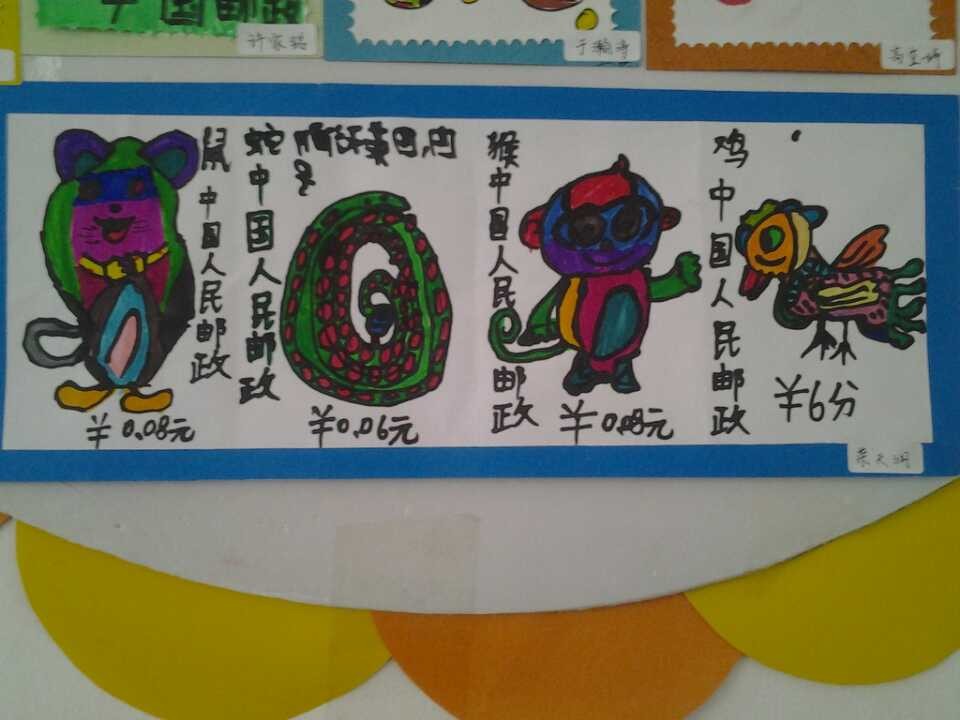 中国邮政
许家铭
鼠
中国人民邮政
¥0.08元
蛇
中国人民邮政
¥0.06元
猴
中国人民邮政
¥0.08元
鸡
中国人民邮政
¥6分